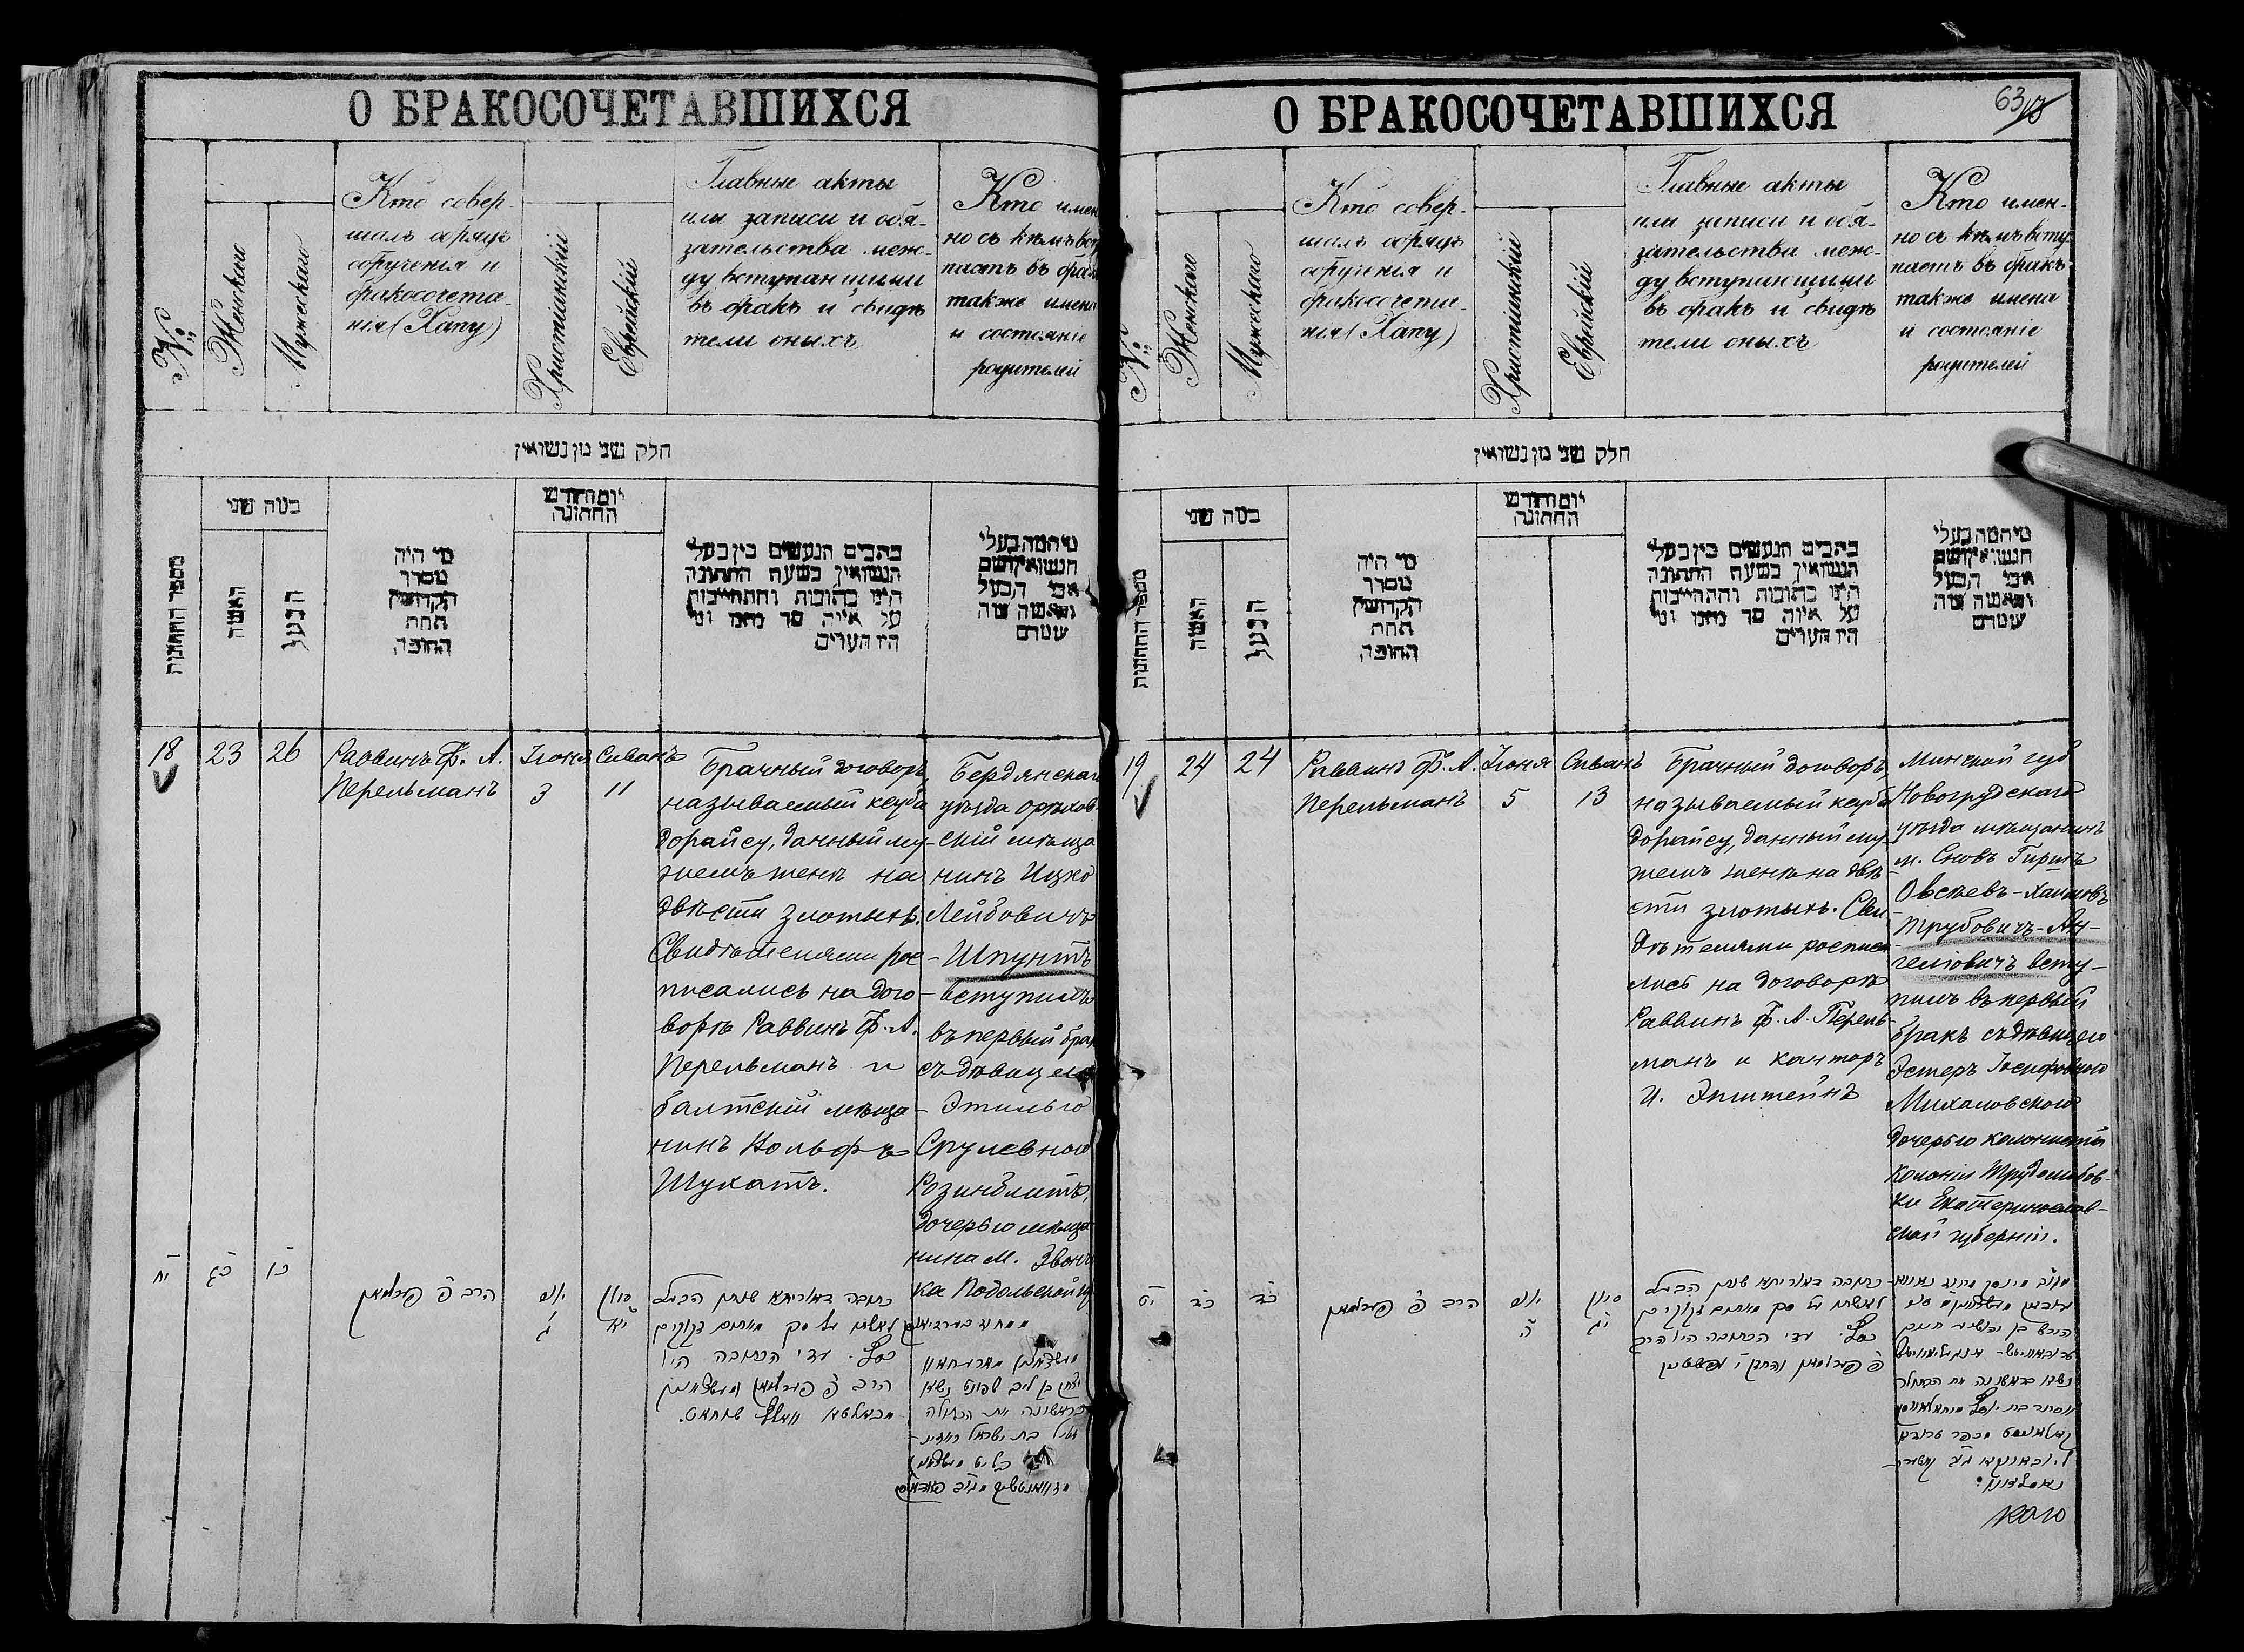 О БРАКОСОЧЕТАВШИХСЯ
№
Женскаго
Мужескаго
Кто совер-
шалъ обрядъ
обрученія и
бракосочета-
нія (Хапу)
Христіанскій
Еврейскій
Главные акты
или записи и обя-
зательства меж-
ду вступающими
въ бракъ и свидѣ
тели оныхъ
Кто имен
но съ кѣмъ всту
паетъ въ бракъ
также имена
и состояніе
родителей
חלק שני מן נשואין
מספר החתונות
כמה שני
האשה
הבעל
מי היה
מסדר
הקדושין
תחת
החופה
יום וחודש
החתונה
כתבים הנעשים בין בעלי
הנשואין בשעת החתונה
היינו כתובות והתחייבות
על איזה סך מהם ומי
היו העדים
מי המה בעלי
הנשואין ושם
אבי הבעל
והאשה ומה
שטרם
18
23
26
Раввинъ Ф. А.
Перельманъ
Іюня
3
Сиванъ
11
Брачный договоръ,
называемый кесуба
дорайсу, данный му-
жемъ женѣ на
двѣсти злотыхъ.
Свидѣтелями рос-
писались на дого-
ворѣ Раввинъ Ф. А.
Перельманъ и
балтскій мѣща-
нинъ Вольфъ
Шухатъ.
Бердянскаго
уѣзда орѣхов-
скій мѣща
нинъ Ицко
Лейбовичъ
Шпунтъ
вступилъ
въ первый бракъ
съ дѣвицею
Этилью
Срулевною
Розинблитъ,
дочерью мѣща
нина м. Звон
ка Подольской гу
יח
כג
כו
הרב פ׳ פערלמאן
יוני
ג׳
סיון
יא
כתובה דאורייתא שנתן הבעל
לאשתו על סך מאתים זקוקים
כסף. עדי הכתובה היו
הרב פ׳ פערלמאן
יצחק בן ליב שפונט נשא
בראשונה את הבתולה
עטיל בת ישראל
О БРАКОСОЧЕТАВШИХСЯ
63
№
Женскаго
Мужескаго
Кто совер-
шалъ обрядъ
обрученія и
бракосочета-
нія (Хапу)
Христіанскій
Еврейскій
Главные акты
или записи и обя-
зательства меж-
ду вступающими
въ бракъ и свидѣ
тели оныхъ
Кто имен-
но съ кѣмъ всту
паетъ въ бракъ
также имена
и состояніе
родителей
חלק שני מן נשואין
מספר החתונות
כמה שני
האשה
הבעל
מי היה
מסדר
הקדושין
תחת
החופה
יום וחודש
החתונה
כתבים הנעשים בין בעלי
הנשואין בשעת החתונה
היינו כתובות והתחייבות
על איזה סך מהם ומי
היו העדים
מי המה בעלי
הנשואין ושם
אבי הבעל
והאשה ומה
שטרם
19
24
24
Раввинъ Ф. А.
Перельманъ
Іюня
5
Сиванъ
13
Брачный договоръ,
называемый кесуба
дорайсу, данный му-
жемъ женѣ на двѣ-
сти злотыхъ. Сви-
дѣтелями росписа-
лись на договорѣ
Раввинъ Ф. А. Перель-
манъ и канторъ
И. Эпштейнъ
Минской губ
Новогрудскаго
уѣзда мѣщанинъ
м. Сновъ Гиршъ
Овсѣевъ-Хаимовъ
Трубовичъ-Ан-
гелговичъ всту-
пилъ въ первый
бракъ съ дѣвицею
Эстеръ Іосифовною
Михаловскою
дочерью колониста
колоніи Трудолюбов-
ки Екатеринослав-
ской губерніи.
יט
כד
כד
הרב פ׳ פערלמאן
יוני
ה׳
סיון
יג
כתובה דאורייתא שנתן הבעל
לאשתו על סך מאתים זקוקים
כסף. עדי הכתובה היו הרב
פ׳ פערלמאן והחזן י׳ עפשטיין
נשא בראשונה את הבתולה